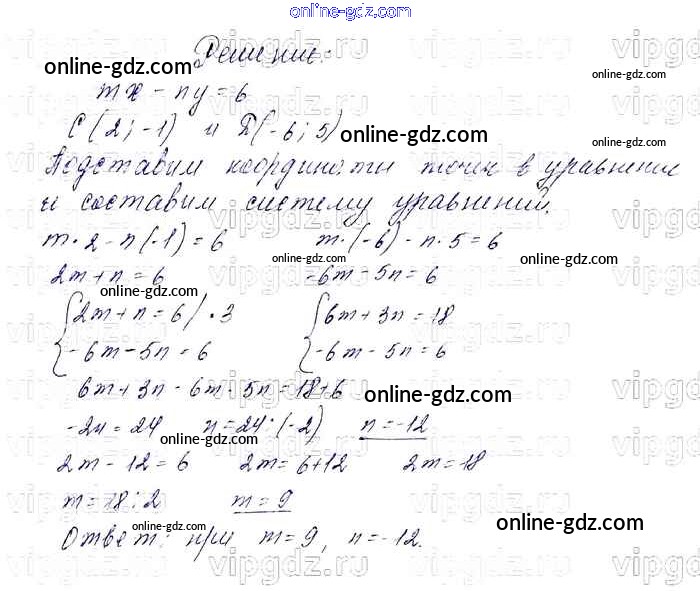 online-gdz.com
Решение:
mx - ny = 6
C(2; -1) и D(-6; 5)
Подставим координаты точек в уравнение
и составим систему уравнений.
m · 2 - n(-1) = 6 m · (-6) - n · 5 = 6
2m + n = 6 -6m - 5n = 6
{2m + n = 6 / · 3 {6m + 3n = 18
-6m - 5n = 6 -6m - 5n = 6
6m + 3n - 6m - 5n = 18 + 6
-2n = 24 n = 24 : (-2) n = -12
2m - 12 = 6 2m = 6 + 12 2m = 18
m = 18 : 2 m = 9
Ответ: при m = 9, n = -12.
online-gdz.com
online-gdz.com
online-gdz.com
online-gdz.com
online-gdz.com
online-gdz.com
online-gdz.com
online-gdz.com
online-gdz.com
online-gdz.com
online-gdz.com
vipgdz.ru